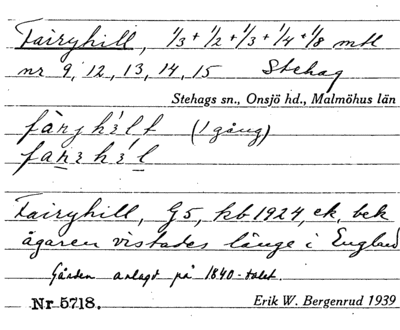 Fairyhill, 1/3 + 1/2 + 1/3 + 1/4 + 1/8 mtl
nr 9, 12, 13, 14, 15 Stehag
Stehags sn., Onsjö hd., Malmöhus län
(1 gång)
Fairyhill, G5, kb 1924, ek, bek
ägaren vistades länge i England
Gården anlagd på 1840-talet.
Nr 5718. Erik W. Bergenrud 1939